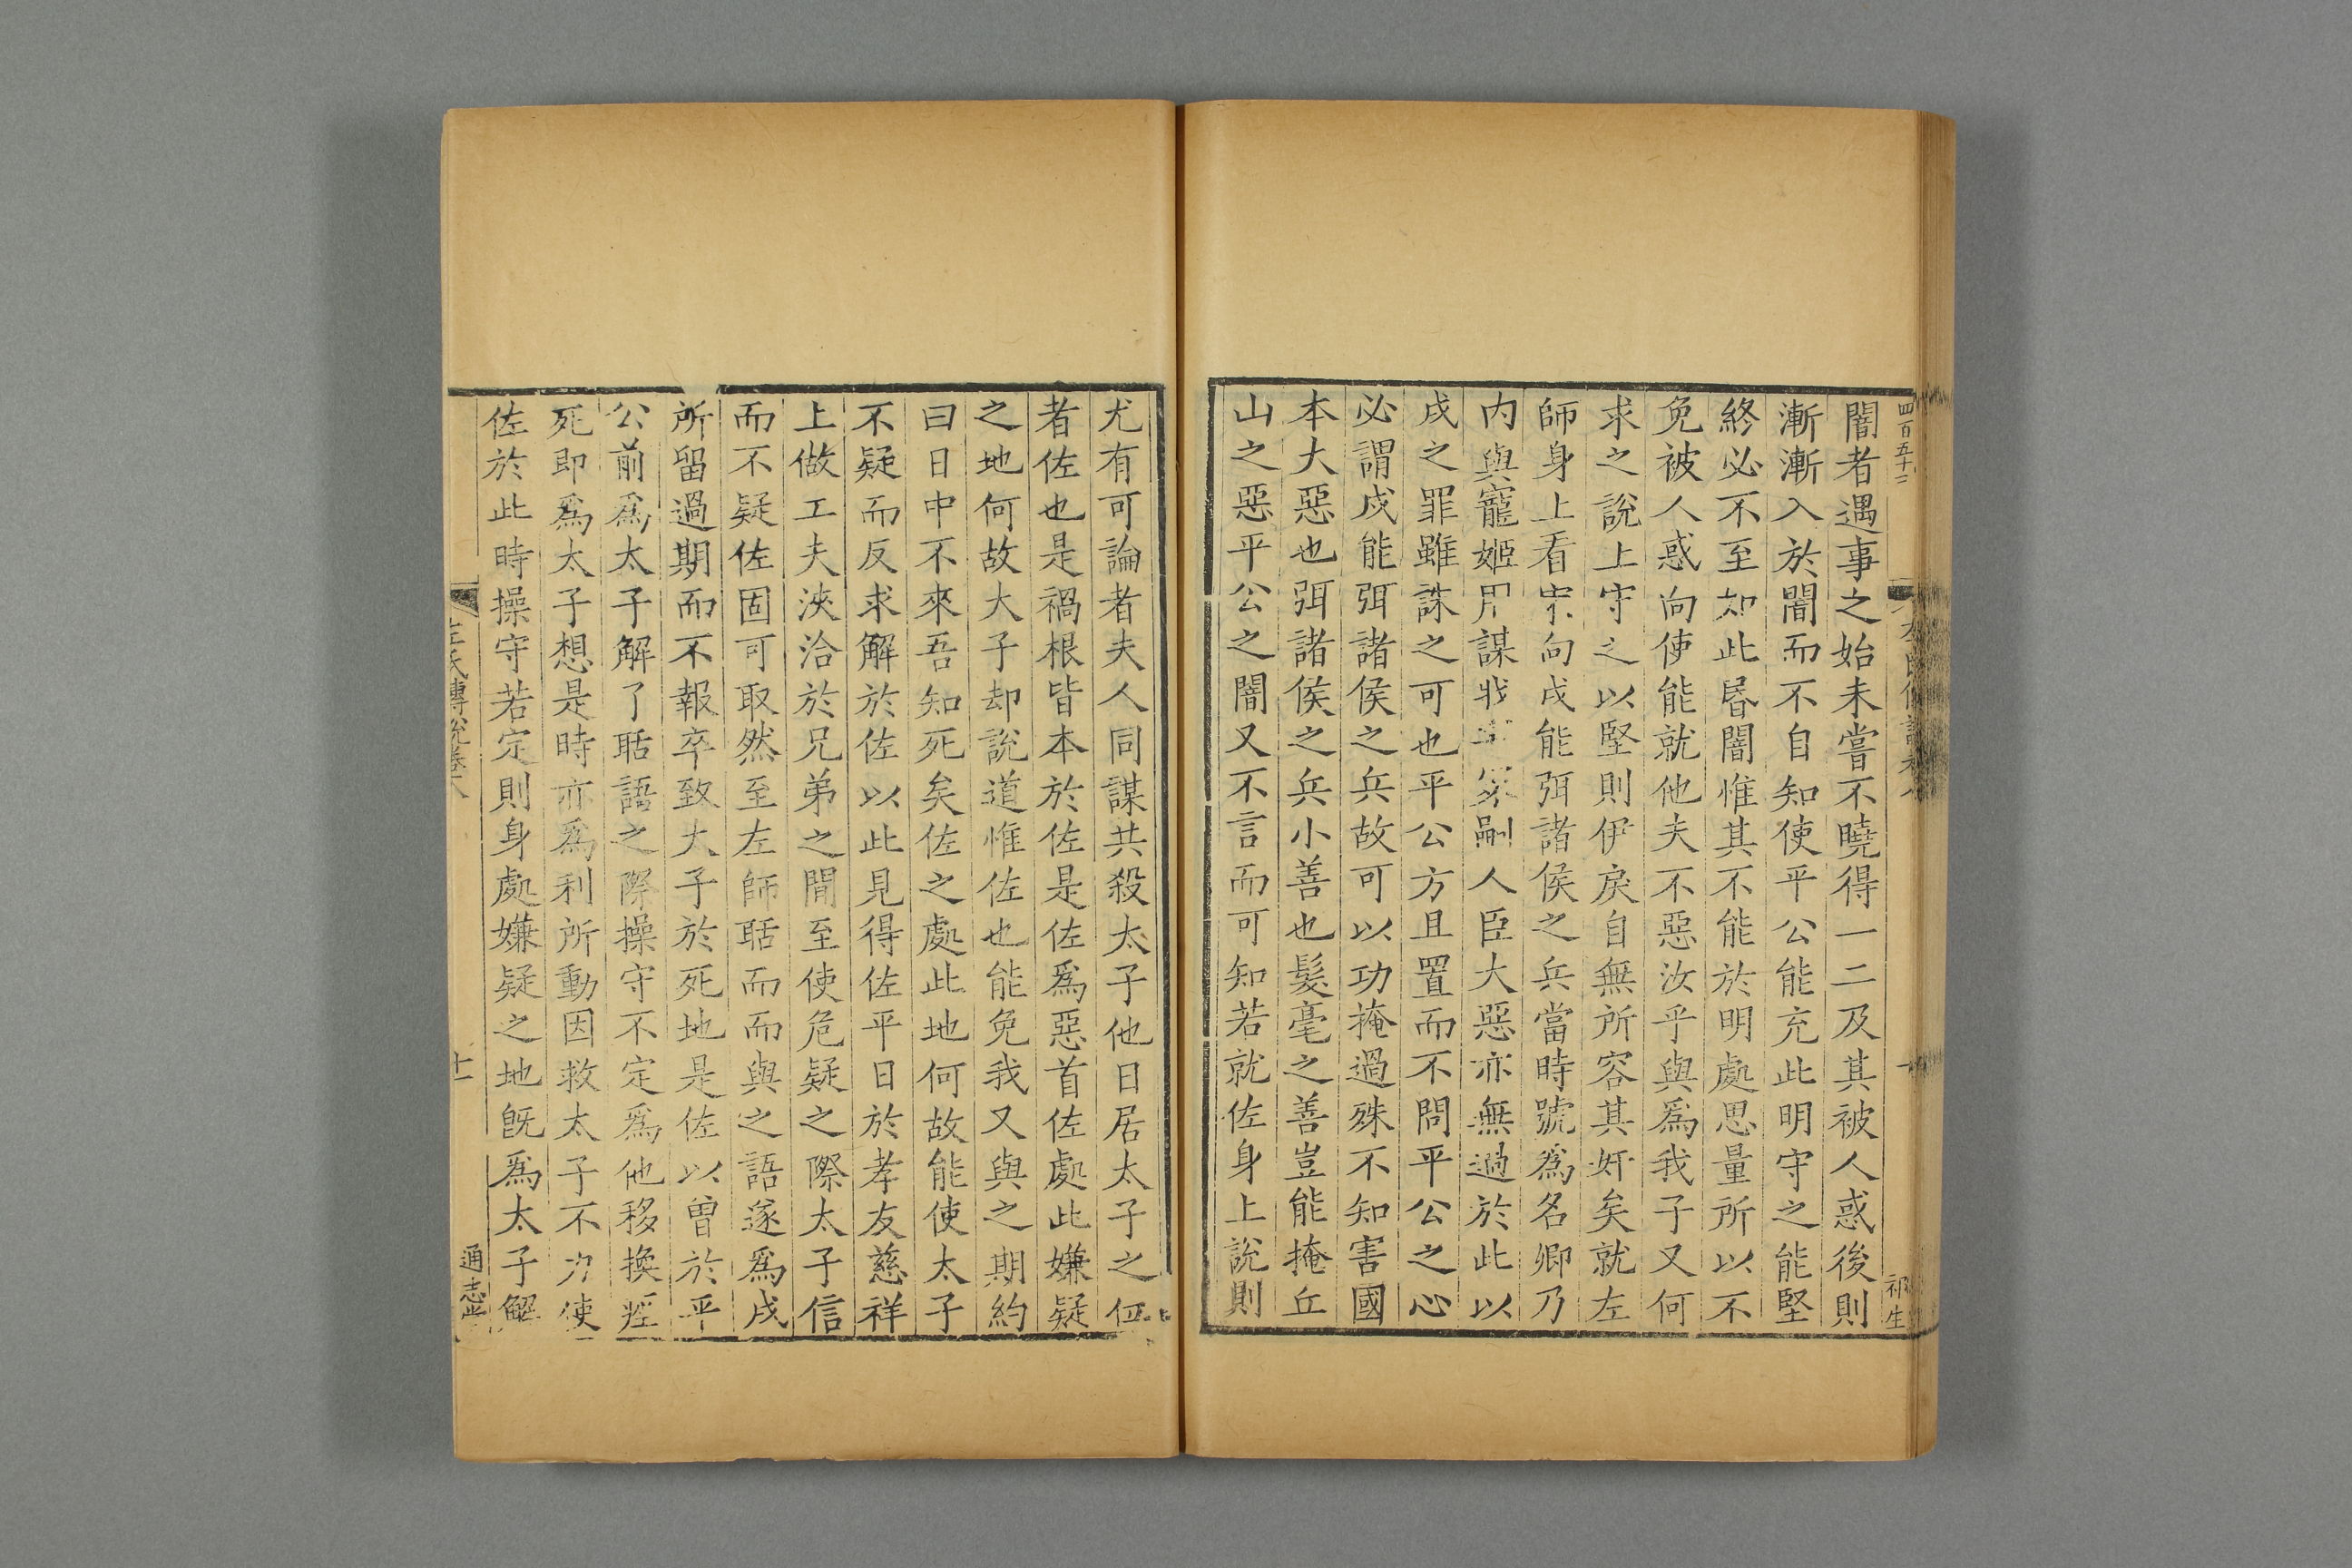 四百五十三
祁生
闇者遇事之始未嘗不曉得一二及其被人惑後則
漸漸入於闇而不自知使平公能充此明守之能堅
終必不至如此昏闇惟其不能於明處思量所以不
免被人惑向使能就他夫不惡汝乎與爲我子又何
求之說上守之以堅則伊戾自無所容其奸矣就左
師身上看宋向戌能弭諸侯之兵當時號爲名卿乃
内與寵姬用謀戕嗣人臣大惡亦無過於此以
戌之罪雖誅之可也平公方且置而不問平公之心
必謂戌能弭諸侯之兵故可以功掩過殊不知害國
本大惡也弭諸侯之兵小善也髮毫之善豈能掩丘
山之惡平公之闇又不言而可知若就佐身上說則
尤有可論者夫人同謀共殺太子他日居太子之位
者佐也是禍根皆本於佐是佐爲惡首佐處此嫌疑
之地何故大子却說道惟佐也能免我又與之期約
曰日中不來吾知死矣佐之處此地何故能使太子
不疑而反求解於佐以此見得佐平日於孝友慈祥
上做工夫浹洽於兄弟之間至使危疑之際太子信
而不疑佐固可取然至左師聒而而與之語遂爲戌
所留過期而不報卒致大子於死地是佐以曾於平
公前爲太子解了聒語之際操守不定爲他移換
死即爲太子想是時亦爲利所動因救太子不力使
佐於此時操守若定則身處嫌疑之地旣爲太子解
左氏傳說卷八
十一
通志堂